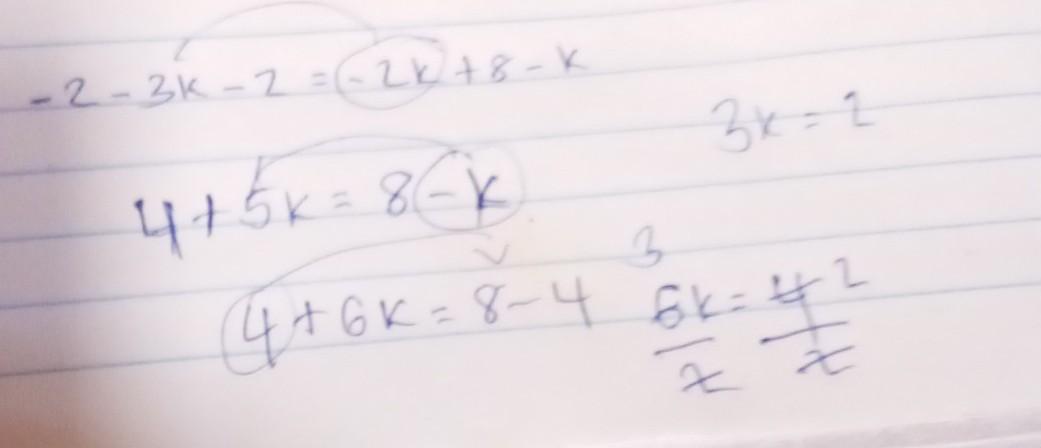 -2-3k-2=-2k+8-k
3k=2
4+5k=8-k
4+6k=8-4
3
6k=4 2
2 2